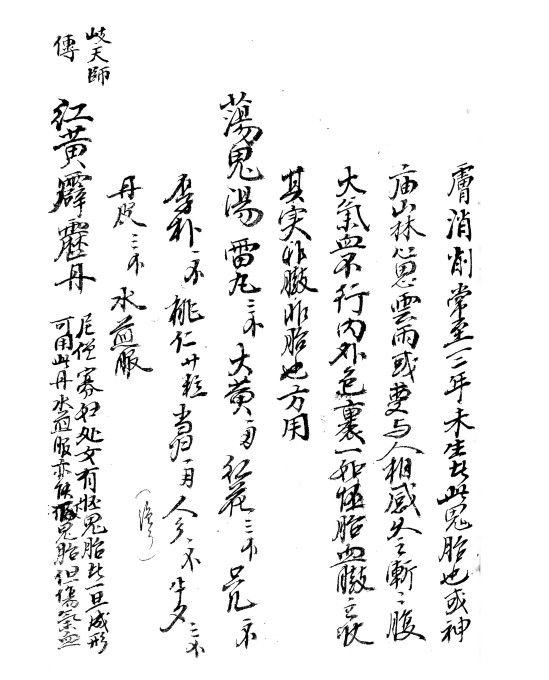 膚消削常至二三年未生者此鬼胎也或神
庙山林心思雲雨或夢与人相感久之漸々腹
大氣血不行内外包裹一如怪胎血臌之状
其实非臌非胎也方用
蕩鬼湯 雷丸三钱 大黄一两 红花三钱
厚朴一钱 桃仁廿粒 当归一两 人参一钱 牛夕三钱
丹皮三钱 水煎服
红黄霹靂丹
尼僧寡妇处女有怪鬼胎者一旦成形
可用此丹水煎服亦能破鬼胎但傷氣血
岐天師
傳